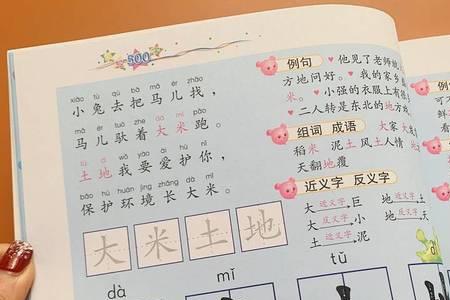 500
xiǎo tù qù bǎ mǎ ér zhǎo
小兔去把马儿找，
mǎ ér tuó zhe dà mǐ pǎo
马儿驮着大米跑。
tǔ dì wǒ yào ài hù nǐ
土地我要爱护你，
bǎo hù huán jìng zhǎng dà mǐ
保护环境长大米。
大米土地
dà
mǐ
tǔ
例句
♥他见了老师就
方地问好。♥我的家乡
米。♥小强的衣服上有
♥二人转是东北的地方
组词 成语
大家 大
稻米 泥土 风土人情
天翻地覆
近义字 反义字
大 近义字 巨
大 反义字 小
土 近义字 泥
地 近义字 土
地 反义字 天
例句